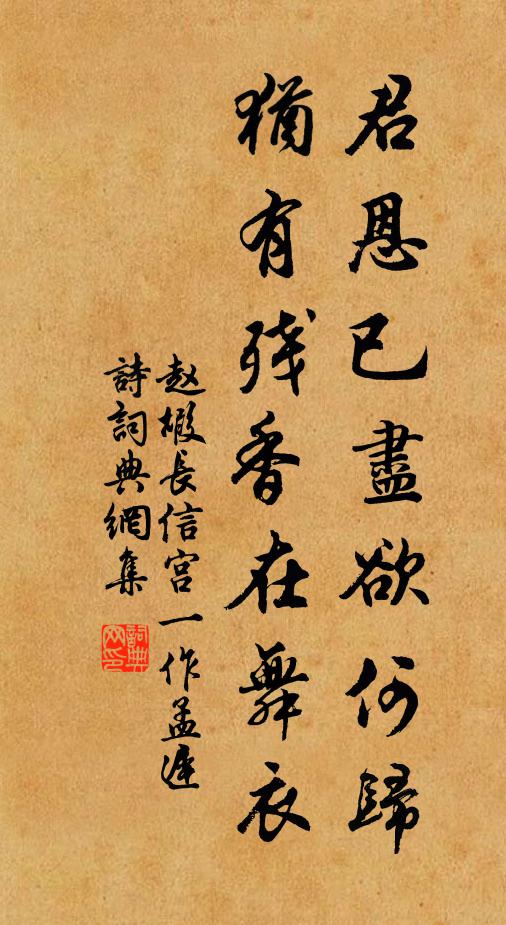 君恩已盡欲何歸
猶有残香在舞衣
赵嘏長信宮一作孟遲
詩詞典網集
詞典网印